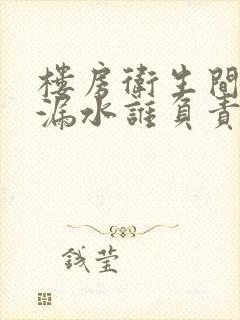 樓房衛生間
漏水誰負責
錢莹